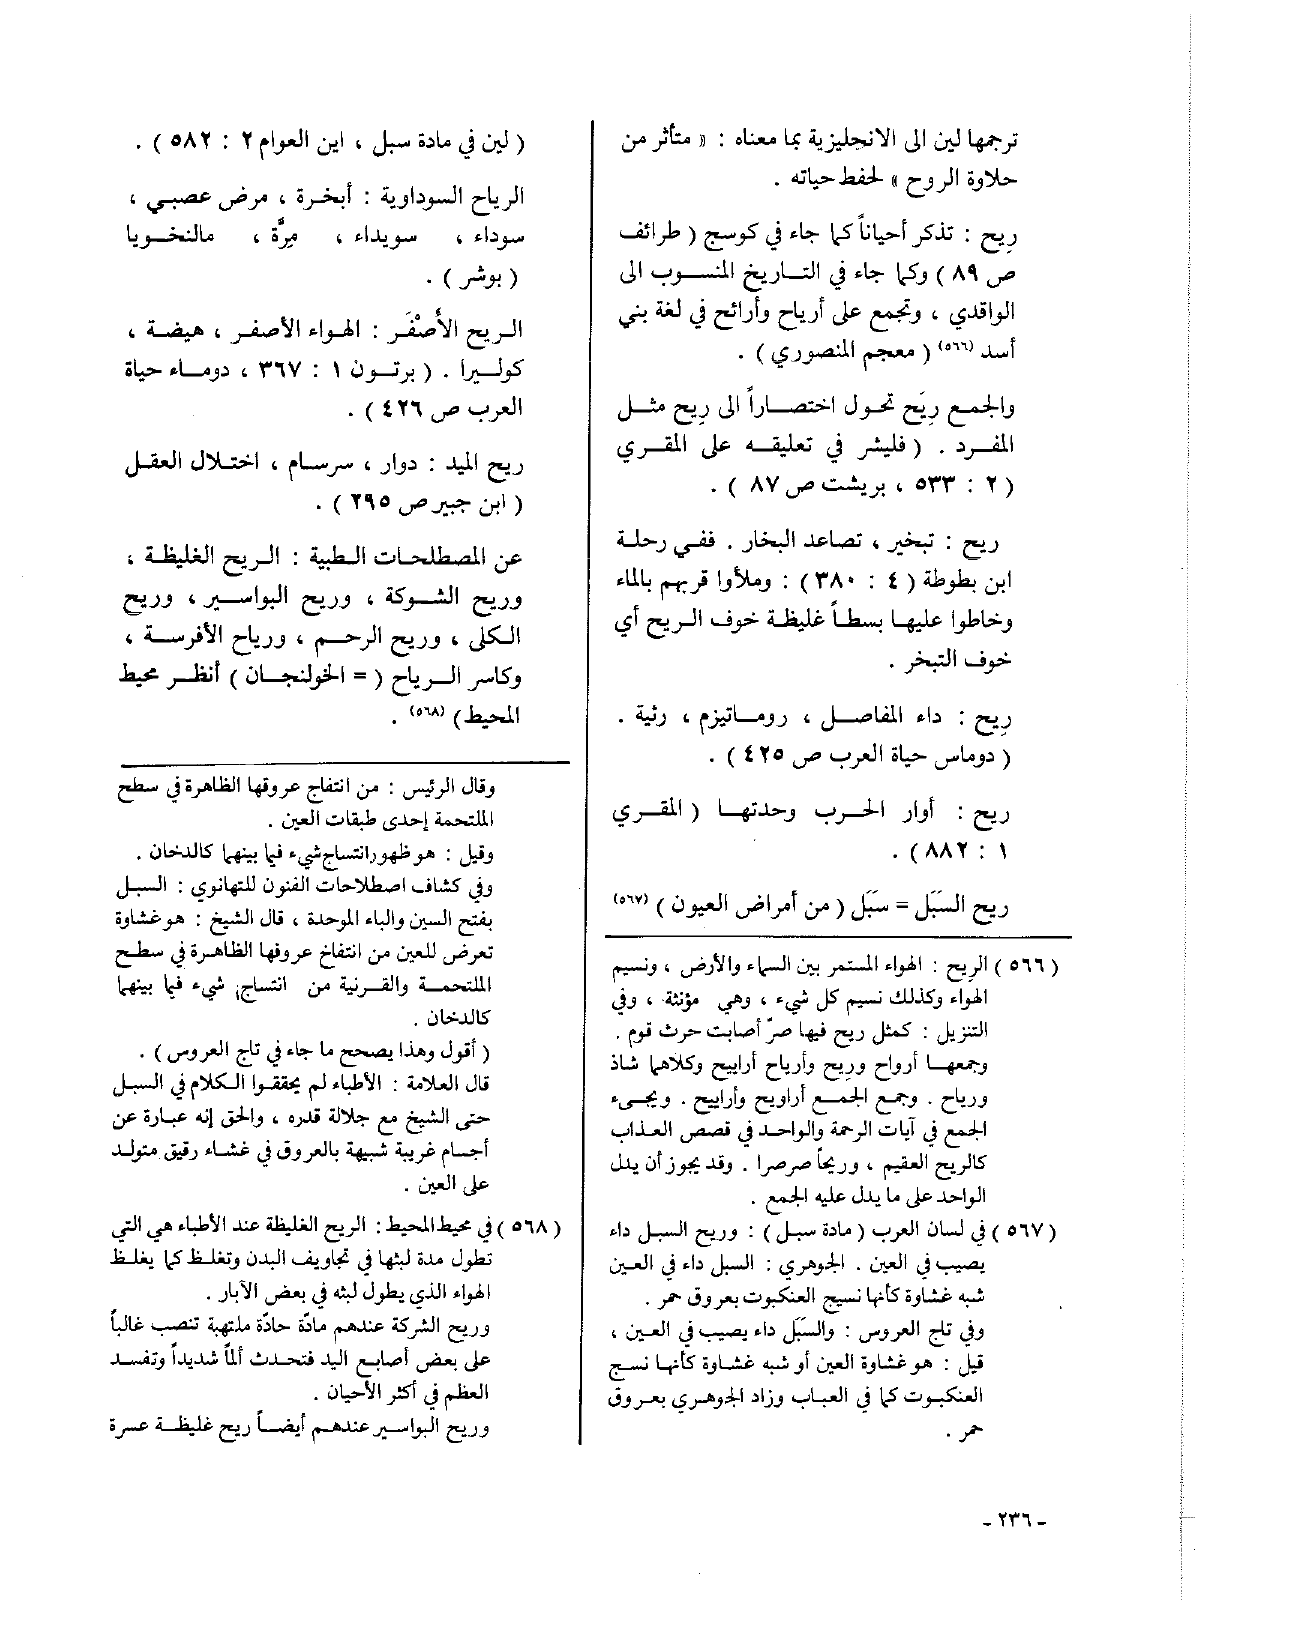 ترجمها لين الى الانجليزية بما معناه : « متأثر من
حلاوة الروح » لحفظ حياته .
رِيح : تذكر أحياناً كما جاء في كوسج ( طرائف
ص ٨٩ ) وكما جاء في التاريخ المنسوب الى
الواقدي ، وتجمع على أرياح وأرائح في لغة بني
أسد (٥٦٦) ( معجم المنصوري ) .
والجمع رِيَح تحول اختصاراً الى رِيح مثل
المفرد . ( فليشر في تعليقه على المقري
( ٢ : ٥٣٣ ، بريشت ص ٨٧ ) .
ريح : تبخير ، تصاعد البخار . ففي رحلة
ابن بطوطة ( ٤ : ٣٨٠ ) : وملأوا قربهم بالماء
وخاطوا عليها بسطاً غليظة خوف الريح أي
خوف التبخر .
رِيح : داء المفاصل ، روماتيزم ، رثية .
( دوماس حياة العرب ص ٤٢٥ ) .
ريح : أوار الحرب وحدتها ( المقري
١ : ٨٨٢ ) .
ريح السَبَل = سَبَل ( من أمراض العيون ) (٥٦٧)
(٥٦٦) الرِيح : الهواء المستمر بين السماء والأرض ، ونسيم
الهواء وكذلك نسيم كل شيء ، وهي مؤنثة ، وفي
التنزيل : كمثل ريح فيها صرّ أصابت حرث قوم .
وجمعها أرواح ورِيح وأرياح أراييح وكلاهما شاذ
ورياح . وجمع الجمع أراويح وأراييح . ويجىء
الجمع في آيات الرحمة والواحد في قصص العذاب
كالريح العقيم ، وريحاً صرصرا . وقد يجوز أن يدل
الواحد على ما يدل عليه الجمع .
(٥٦٧) في لسان العرب ( مادة سبل ) : وريح السبل داء
يصيب في العين . الجوهري : السبل داء في العين
شبه غشاوة كأنها نسيج العنكبوت بعروق حمر .
وفي تاج العروس : والسَّبَل داء يصيب في العين ،
قيل : هو غشاوة العين أو شبه غشاوة كأنها نسج
العنكبوت كما في العباب وزاد الجوهري بعروق
حمر .
( لين في مادة سبل ، ابن العوام ٢ : ٥٨٢ ) .
الرياح السوداوية : أبخرة ، مرض عصبي ،
سوداء ، سويداء ، مِرَّة ، مالنخوليا
( بوشر ) .
الريح الأصْفَر : الهواء الأصفر ، هيضة ،
كوليرا . ( برتون ١ : ٣٦٧ ، دوماء حياة
العرب ص ٤٢٦ ) .
ريح الميد : دوار ، سرسام ، اختلال العقل
( ابن جبير ص ٢٩٥ ) .
عن المصطلحات الطبية : الريح الغليظة ،
وريح الشوكة ، وريح البواسير ، وريح
الكلى ، وريح الرحم ، ورياح الأفرسة ،
وكاسر الرياح ( = الخولنجان ) أنظر محيط
المحيط ) (٥٦٨) .
وقال الرئيس : من انتفاخ عروقها الظاهرة في سطح
الملتحمة إحدى طبقات العين .
وقيل : هو ظهور انتساج شيء فيما بينهما كالدخان .
وفي كشاف اصطلاحات الفنون للتهانوي : السبل
بفتح السين والباء الموحدة ، قال الشيخ : هو غشاوة
تعرض للعين من انتفاخ عروقها الظاهرة في سطح
الملتحمة والقرنية من انتساج شيء فيما بينهما
كالدخان .
( أقول وهذا يصحح ما جاء في تاج العروس ) .
قال العلامة : الأطباء لم يحققوا الكلام في السبل
حتى الشيخ مع جلالة قدره ، والحق إنه عبارة عن
أجسام غريبة شبيهة بالعروق في غشاء رقيق متولد
على العين .
(٥٦٨) في محيط المحيط : الريح الغليظة عند الأطباء هي التي
تطول مدة لبثها في تجاويف البدن وتغلظ كما يغلظ
الهواء الذي يطول لبثه في بعض الآبار .
وريح الشركة عندهم مادّة حادّة ملتهبة تنصب غالباً
على بعض أصابع اليد فتحدث ألماً شديداً وتفسد
العظم في أكثر الأحيان .
وريح البواسير عندهم أيضاً ريح غليظة عسرة
- ٢٣٦ -